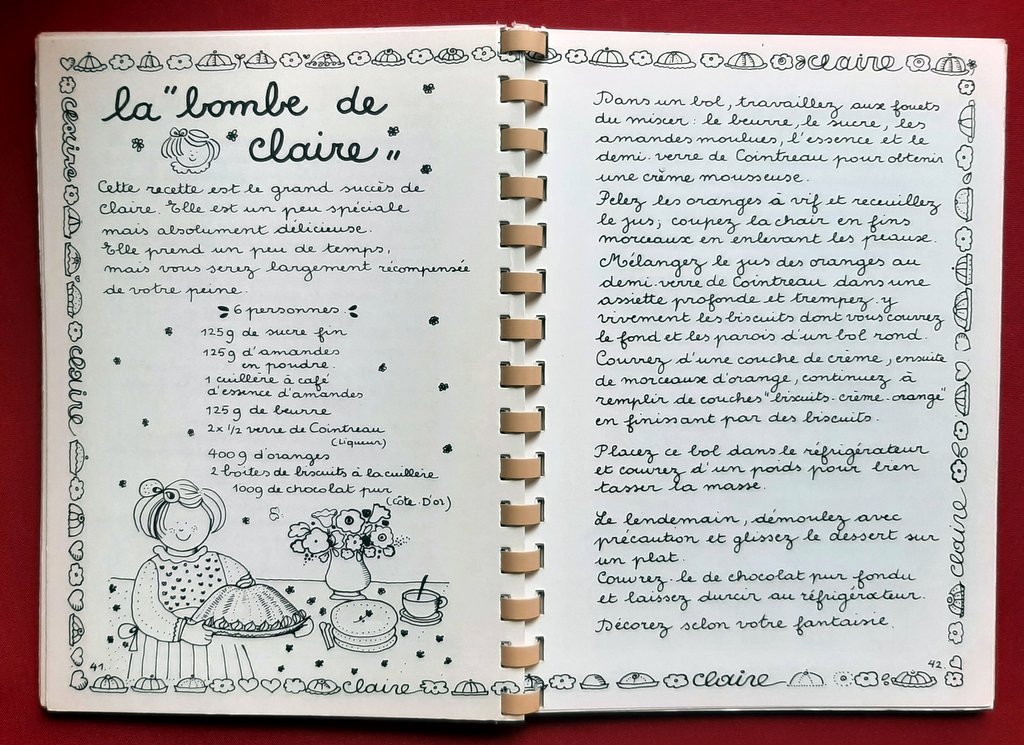 la "bombe de
claire"
Cette recette est le grand succès de
Claire. Elle est un peu spéciale
mais absolument délicieuse.
Elle prend un peu de temps,
mais vous serez largement récompensée
de votre peine.
6 personnes.
125g de sucre fin
125g d'amandes
en poudre.
1 cuillère à café
d'essence d'amandes
125g de beurre
2x 1/2 verre de Cointreau
(Liqueur)
400g d'oranges
2 boîtes de biscuits à la cuillère
100g de chocolat pur
(Côte-D'or)
41.
claire
claire
claire
claire
Dans un bol, travaillez aux fouets
du mixer: le beurre, le sucre, les
amandes moulues, l'essence et le
demi-verre de Cointreau pour obtenir
une crème mousseuse.
Pelez les oranges à vif et receuillez
le jus; coupez la chair en fins
morceaux en enlevant les peaux.
Mélangez le jus des oranges au
demi-verre de Cointreau dans une
assiette profonde et trempez-y
vivement les biscuits dont vous couvrez
le fond et les parois d'un bol rond.
Couvrez d'une couche de crème, ensuite
de morceaux d'orange, continuez à
remplir de couches "biscuits-crème-orange"
en finissant par des biscuits.
Placez ce bol dans le réfrigérateur
et couvrez d'un poids pour bien
tasser la masse.
Le lendemain, démoulez avec
précaution et glissez le dessert sur
un plat.
Couvrez-le de chocolat pur fondu
et laissez durcir au réfrigérateur.
Décorez selon votre fantaisie.
42.
claire
claire